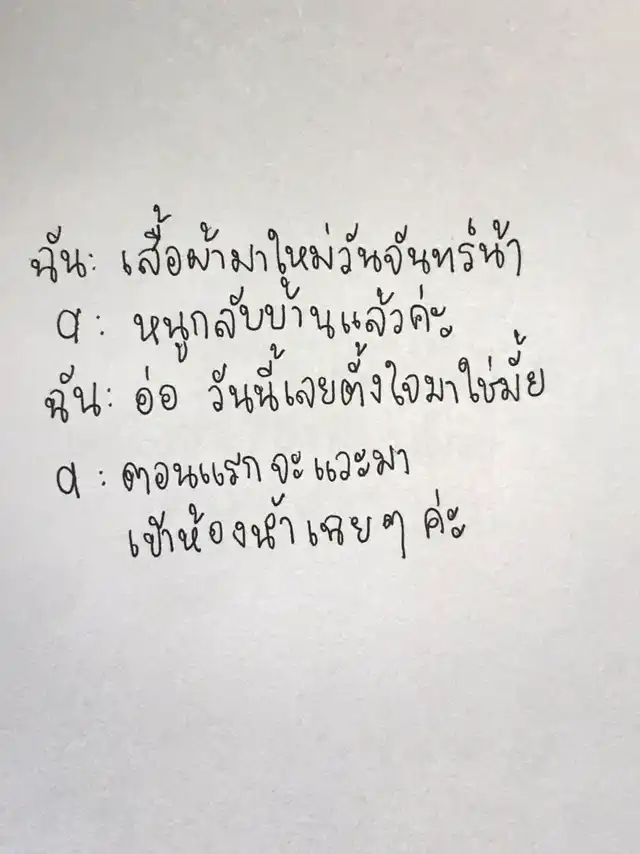 ฉัน: เสื้อผ้ามาใหม่วันจันทร์น้า
a: หนูกลับบ้านแล้วค่ะ
ฉัน: อ่อ วันนี้เลยตั้งใจมาใช่มั้ย
a: ตอนแรกจะแวะมา
เข้าห้องน้ำเฉยๆ ค่ะ